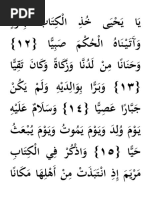 يَا يَحْيَى خُذِ الْكِتَابَ بِقُوَّةٍ
وَآتَيْنَاهُ الْحُكْمَ صَبِيًّا {١٢}
وَحَنَانًا مِنْ لَدُنَّا وَزَكَاةً وَكَانَ تَقِيًّا
{١٣} وَبَرًّا بِوَالِدَيْهِ وَلَمْ يَكُنْ
جَبَّارًا عَصِيًّا {١٤} وَسَلَامٌ عَلَيْهِ
يَوْمَ وُلِدَ وَيَوْمَ يَمُوتُ وَيَوْمَ يُبْعَثُ
حَيًّا {١٥} وَاذْكُرْ فِي الْكِتَابِ
مَرْيَمَ إِذِ انْتَبَذَتْ مِنْ أَهْلِهَا مَكَانًا